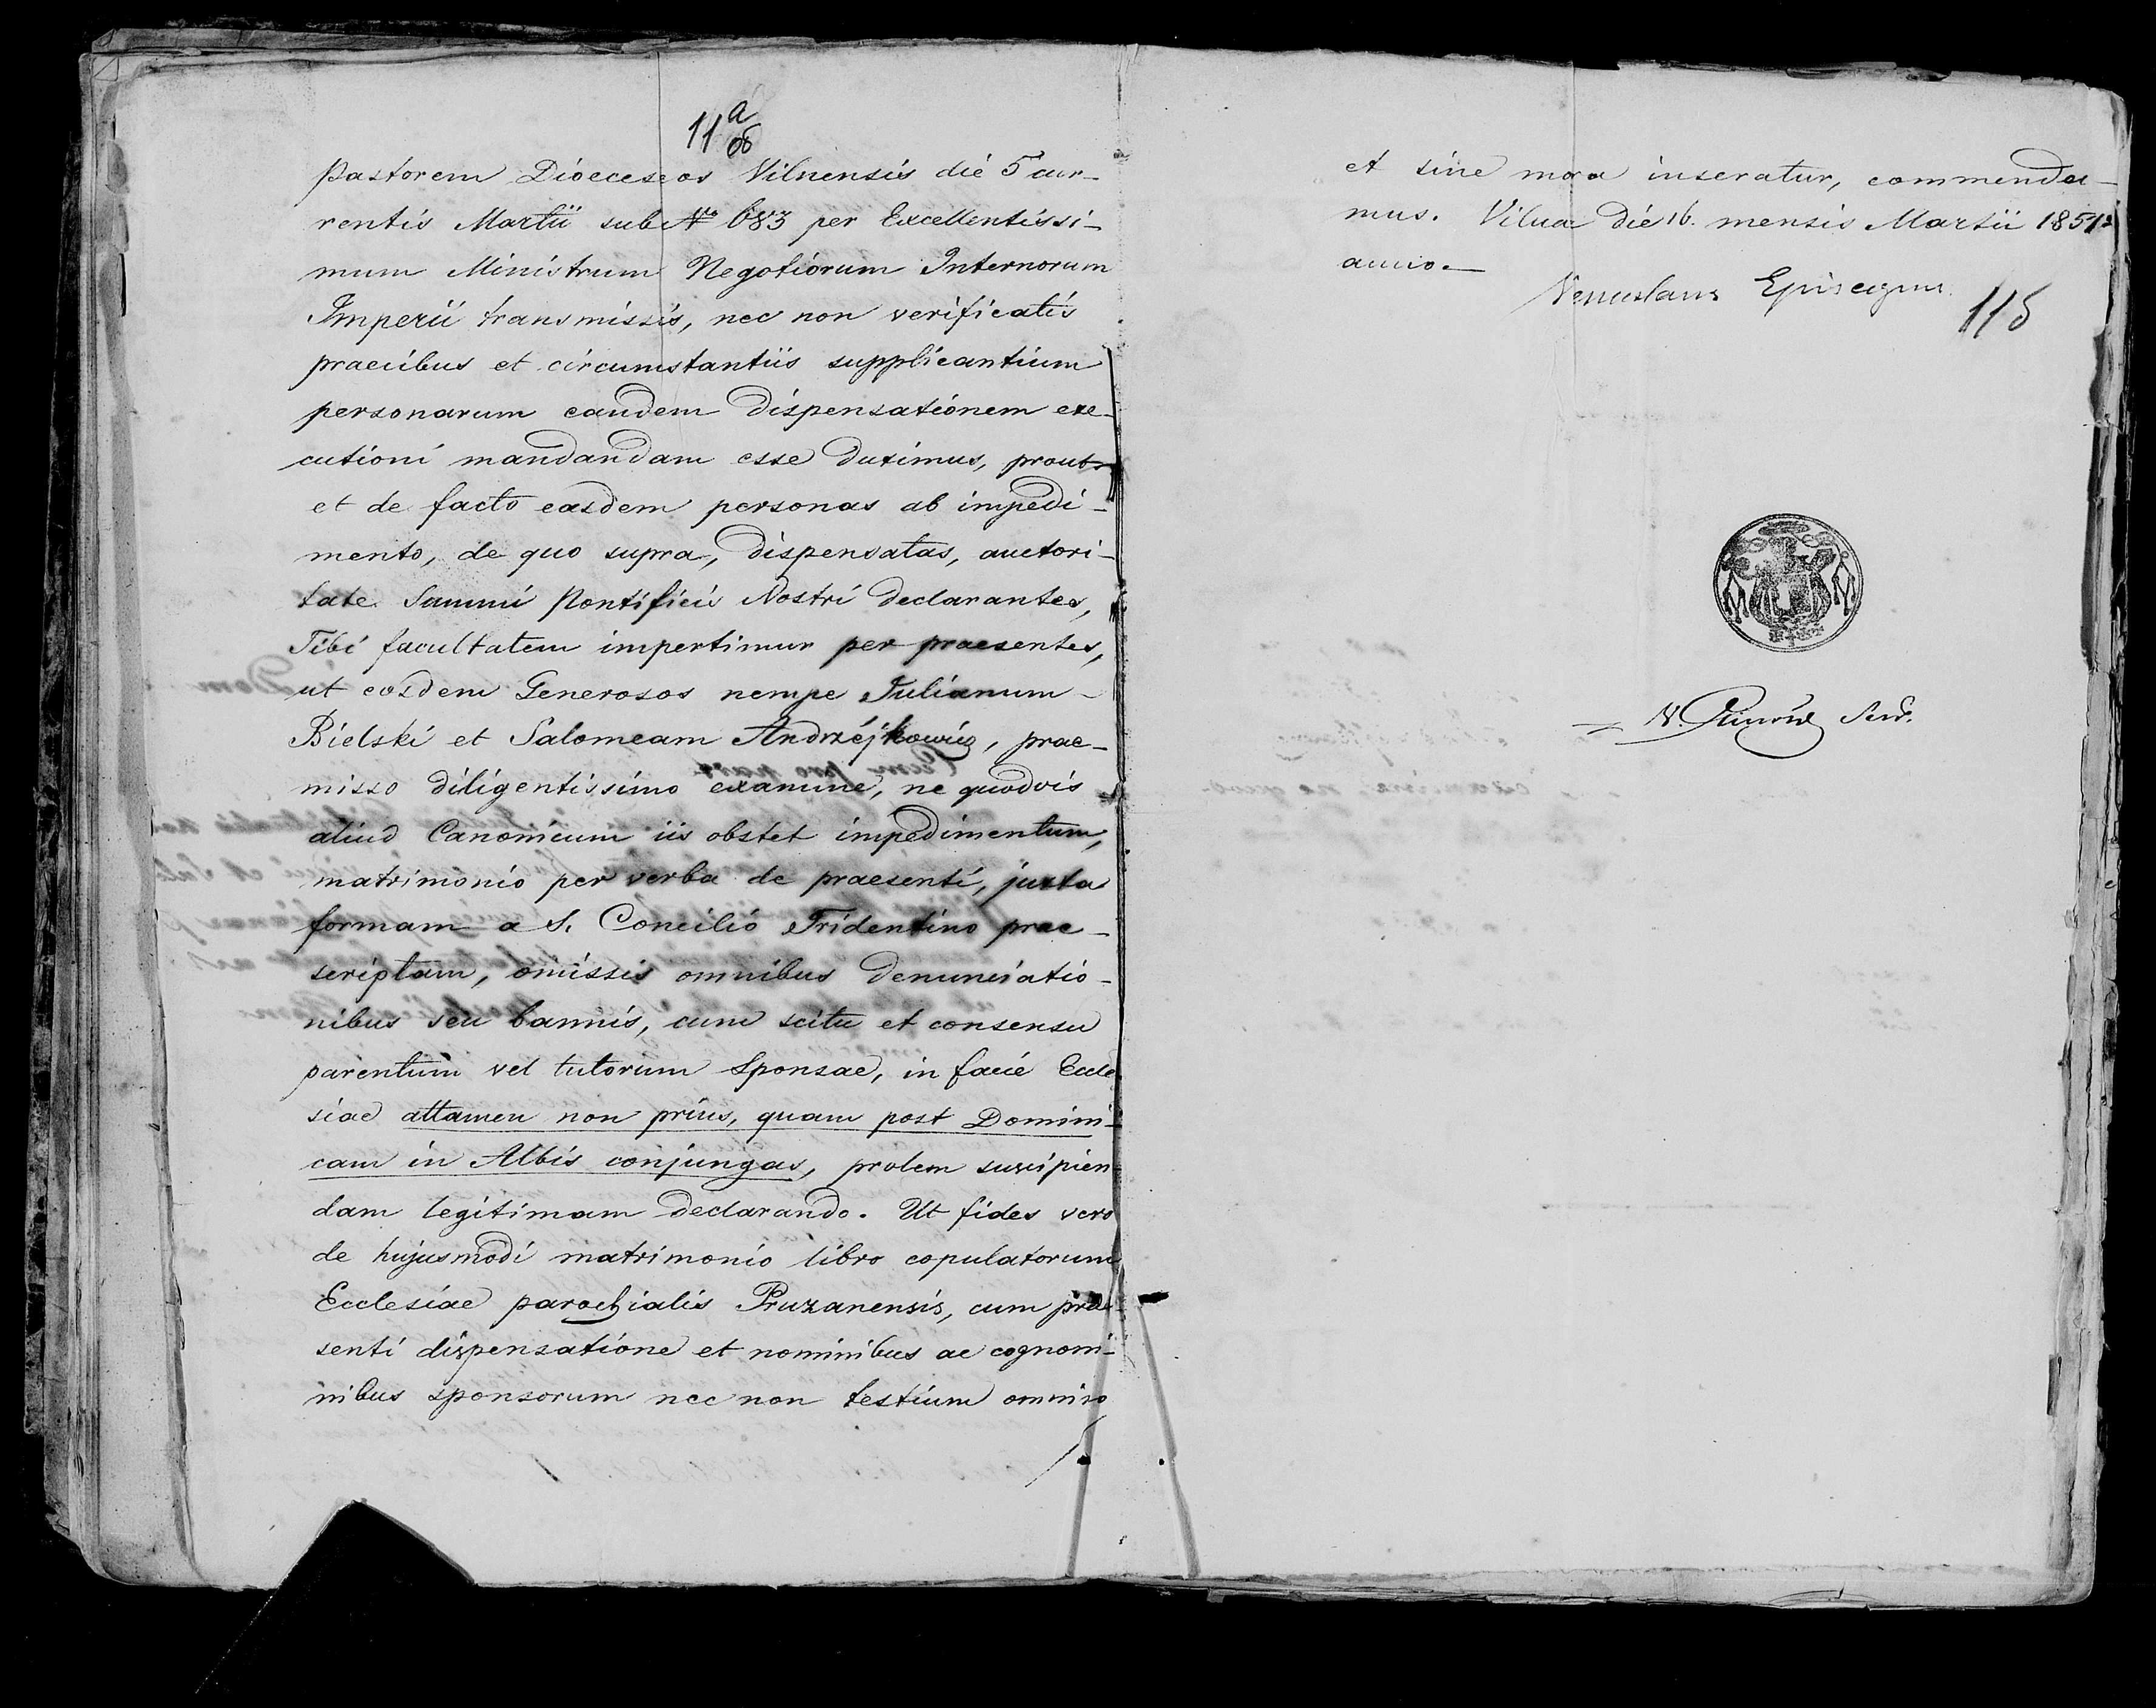 11 a
об
pastorem Dioeceseos Vilnensis die 5 cur-
rentis Martii sub № 683 per Excellentissi-
mum Ministrum Negotiorum Internorum
Imperii transmissis, nec non verificatis
praecibus et circumstantiis supplicantium
personarum eandem dispensationem exe-
cutioni mandandam esse duximus, prout
et de facto easdem personas ab impedi-
mento, de quo supra, dispensatas, auctori-
tate Summi Pontificis Nostri declarantes,
Tibi facultatem impertimur per praesentes,
ut eosdem Generosos nempe Julianum
Bielski et Salomeam Andrzéjkowicz, prae-
misso diligentissimo examine, ne quodvis
aliud Canonicum iis obstet impedimentum,
matrimonio per verba de praesenti, juxta
formam a S. Concilio Tridentino prae-
scriptam, omissis omnibus denunciatio-
nibus seu bannis, cum scitu et consensu
parentum vel tutorum Sponsae, in facie Eccle
siae attamen non prius, quam post Domini-
cam in Albis conjungas, prolem suscipien-
dam legitimam declarando. Ut fides vero
de hujusmodi matrimonio libro copulatorum
Ecclesiae parochialis Pruzanensis, cum prae-
senti dispensatione et nominibus ac cognomi-
nibus sponsorum nec non testium omnino
et sine mora inseratur, commenda-
mus. Vilna die 16. mensis Martii 1851
anno.
Venceslaus Episcopus
115